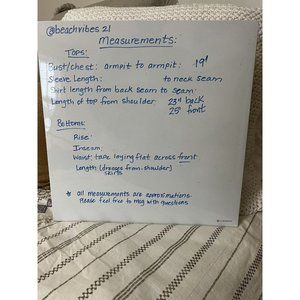 @beachvibes21
Measurements:
Tops:
Bust/chest: armpit to armpit: 19"
Sleeve Length: to neck seam
Shirt length from back seam to seam
Length of top from shoulder: 23" back
25" front
Bottoms:
Rise:
Inseam:
Waist: tape laying flat across front
Length (dresses from shoulder)
skirts
* all measurements are approximations
Please feel free to msg with questions